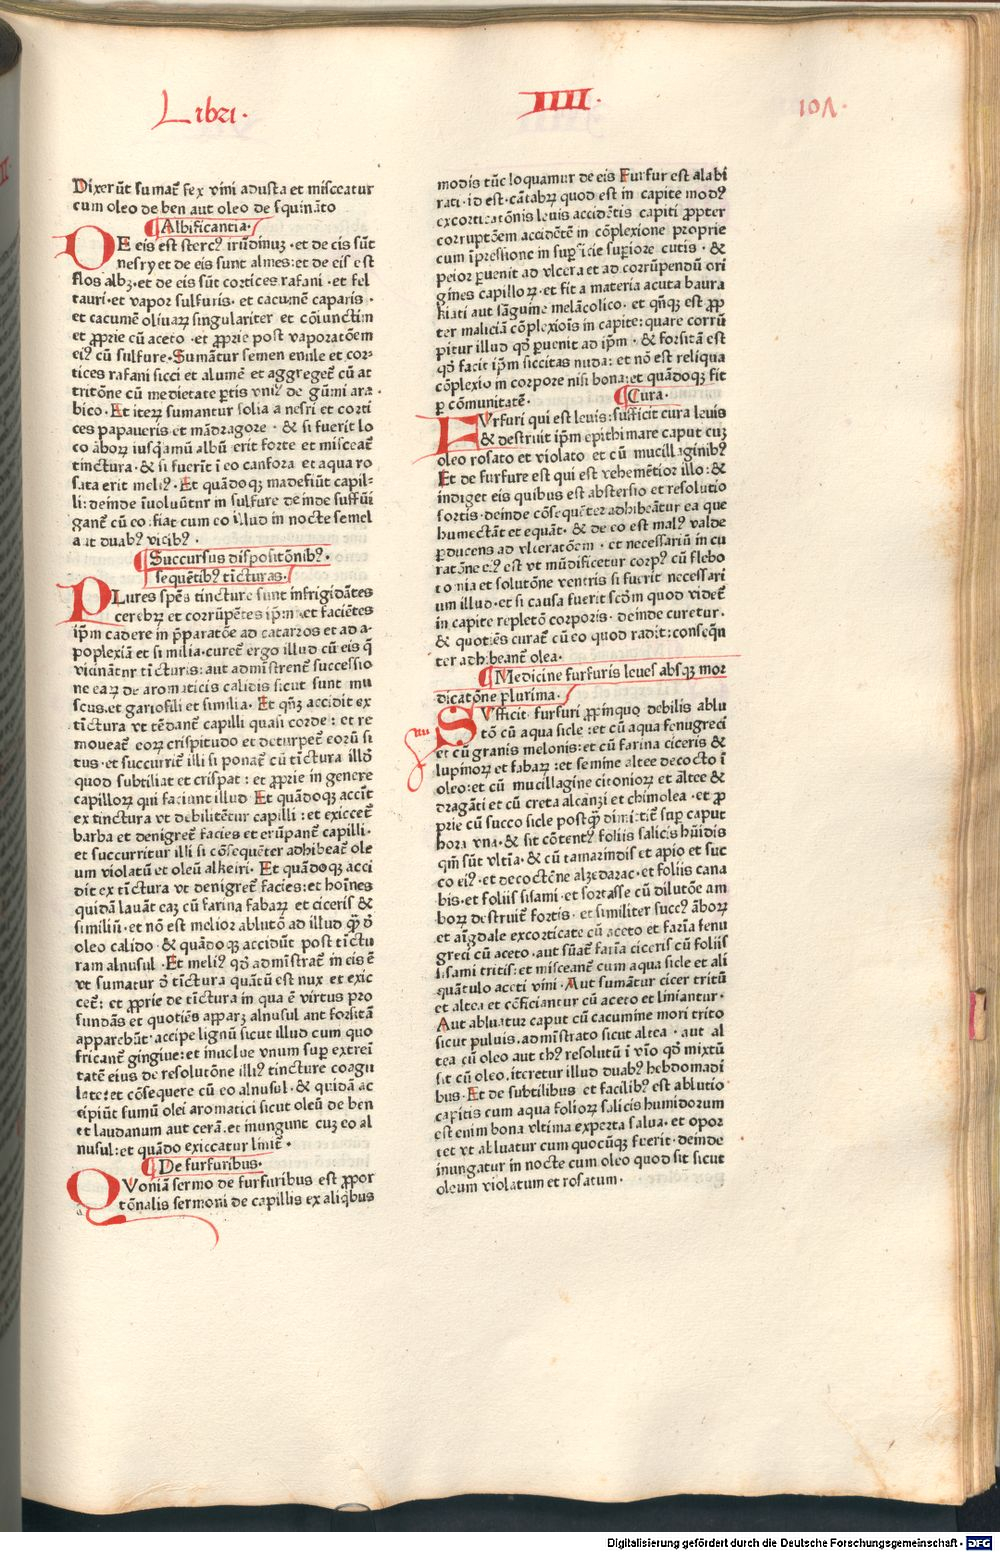 Libri·
IIII·
101·
Dixerūt sumat̄ fex vini adusta et misceatur
cum oleo de ben aut oleo de squināto
¶ Albificantia·
DE eis est stercꝰ irūdinuꝫ ·et de eis sūt
nesry et de eis sunt almes: et de eis est
flos albꝫ·et de eis sūt cortices rafani ·et fel
tauri·et vapor sulfuris· et cacumē caparis ·
et cacumē oliuaꝝ singulariter et cōiunctim
et ꝓprie cū aceto ·et ꝓprie post vaporatōem
eiꝰ cū sulfure·Sumātur semen enule et cor⸗
tices rafani sicci et alumē et aggreget̄ cū at
tritōne cū medietate ꝑtis vniꝰ de gūmi ara ·
bico·Et iteꝝ sumantur folia a nesri et corti
ces papaueris et mādragore · & si fuerit lo
co aboꝝ iusqamū albū erit forte et misceat̄
tinctura·& si fuerit ī eo canfora et aqua ro
sata erit meliꝰ·Et quādoqꝫ madefiūt capil⸗
li: deinde īuoluūtur in sulfure deinde suffūi
gant̄ cū eo·fiat cum eo illud in nocte semel
aut duabꝰ vicibꝰ ·
¶ Succursus dispositōnibꝰ·
sequētibꝰ tīcturas·
PLures spēs tincture sunt infrigidātes
cerebꝝ et corrūpētes ip̄m et faciētes
ip̄m cadere in p̄paratōe ad catarros et ad a⸗
poplexiā et similia·curet̄ ergo illud cū eis q̄
vicinātur tīcturis: aut admīstrent̄ successio
ne eaꝝ de aromaticis calidis sicut sunt mu
scus·et gariofili et similia· Et qn̄qꝫ accidit ex
tīctura vt tēdant̄ capilli quasi corde: et re
moueat̄ eoꝝ crispitudo et deturpet̄ eorū si
tus·et succurrit̄ illi si ponat̄ cū tīctura illd̄
quod subtiliat et crispat: et ꝓprie in genere
capilloꝝ qui faciunt illud Et quādoqꝫ accīt
ex tinctura vt debilitētur capilli: et exiccet̄
barba et denigret̄ facies et erūpant̄ capilli·
et succurritur illi si cōsequēter adhibeat̄ ole
um violatū et oleū alkeiri· Et quādoqꝫ acci
dit ex tīctura vt denigret̄ facies: et hoīnes
quidā lauāt eaꝫ cū farina fabaꝝ et ciceris &
similiū·et nō est melior ablutō ad illud qꝫ̄ d̄
oleo calido·& quādoqꝫ accidūt post tīctu
ram alnusul·Et meliꝰ qd̄ admīstrat̄ in eis ē
vt sumatur d̄ tīctura quātū est nux et exic
cet̄: et ꝓprie de tīctura in qua ē virtus pro
fundās et quotiēs apparꝫ alnusul ant forsitā
apparebūt·accipe lignū sicut illud cum quo
fricant̄ gingiue: et inuolue vnum suꝑ extrei
tatē eius de resolutōne illiꝰ tincture coagu
late: et cōsequere cū eo alnusul·& quidā ac
cipiūt fumū olei aromatici sicut oleū de ben
et laudanum aut cerā·et inungunt cuꝫ eo al
nusul: et quādo exiccatur linit̄ ·
¶ De furfuribus·
QVoniā sermo de furfuribus est ꝓpor
tōnalis sermoni de capillis ex aliqbus
modis tūc loquamur de eis Furfur est alabi
rati·id est·cātabꝝ quod est in capite modꝰ
excorticatōnis leuis accidētis capiti ꝓpter
corruptōem accidētē in cōplexione proprie
cum īpressione in suꝑficie suꝑiore cutis· &
peior ꝑuenit ad vlcera et ad corrūpendū ori
gines capilloꝝ·et fit a materia acuta baura
kiati aut sāguine melācolico·et qn̄qꝫ est ꝓp
ter maliciā cōplexiois in capite: quare corrū
pitur illud qd̄ ꝑuenit ad ip̄m·& forsitā est
qd̄ facit ip̄m siccitas nuda: et nō est reliqua
cōplexio in corpore nisi bona: et quādoqꝫ fit
ꝑ cōmunitatē· ¶ Cura·
FVrfuri qui est leuis: sufficit cura leuis
& destruit ip̄m epithimare caput cuꝫ
oleo rosato et violato et cū mucillaginibꝰ
Et de furfure est qui est vehemētior illo: &
indiget eis quibus est abstersio et resolutio
fortis·deinde cōsequēter adhibeātur ea que
humectāt et equāt·& de eo est malꝰ valde
ꝑducens ad vlceratōem·et necessariū in cu
ratōne eiꝰ est vt mūdificetur corpꝰ cū flebo
tomia et solutōne ventris si fuerit necessari
um illud·et si causa fuerit scd̄m quod videt̄
in capite repletō corporis·deinde curetur·
& quotiēs curat̄ cū eo quod radit: conseqn̄
ter adhibeant̄ olea·
¶ Medicine furfuris leues absqꝫ mor
dicatōne plurima·
SVfficit furfuri ꝓpinquo debilis ablu
tō cū aqua sicle: et cū aqua fenugreci
et cū granis melonis: et cū farina ciceris &
lupinoꝝ et fabaꝝ: et semine altee decocto ī
oleo: et cū mucillagine citonioꝝ et altee &
draganti et cū creta alcanzi et chimolea·et ꝓ
prie cū succo sicle postqꝫ̄ dimittit̄ suꝑ caput
hora vna·& sit cōtentꝰ foliis salicis hūidis
qm̄ sūt vltīa·& cū tamarindis et apio et suc
co eiꝰ·et decoctōne alzedarac·et foliis cana
bis·et foliis sisami·et fortasse cū dilutōe am
boꝝ destruit̄ fortis·et similiter succꝰ āboꝝ
et amīgdale excorticate cū aceto et farīa fenu
greci cū aceto·aut sūat̄ farīa ciceris cū foliis
sisami tritis: et misceant̄ cum aqua sicle et ali
quātulo aceti vini·Aut sumātur cicer tritū
et altea et cōficiantur cū aceto et liniantur·
Aut abluatur caput cū cacumine mori trito
sicut puluis·admīstrato sicut altea · aut al
tea cū oleo aut thꝰ resolutū ī vīo qd̄ mixtū
sit cū oleo·iteretur illud duabꝰ hebdomadi
bus·Et de subtilibus et facilibꝰ est ablutio
capitis cum aqua folioꝝ salicis humidorum
est enim bona vltima experta salua·et opor
tet vt abluatur cum quocūqꝫ fuerit·deinde
inungatur in nocte cum oleo quod sit sicut
oleum violatum et rosatum·
Digitalisierung gefördert durch die Deutsche Forschungsgemeinschaft - DFG